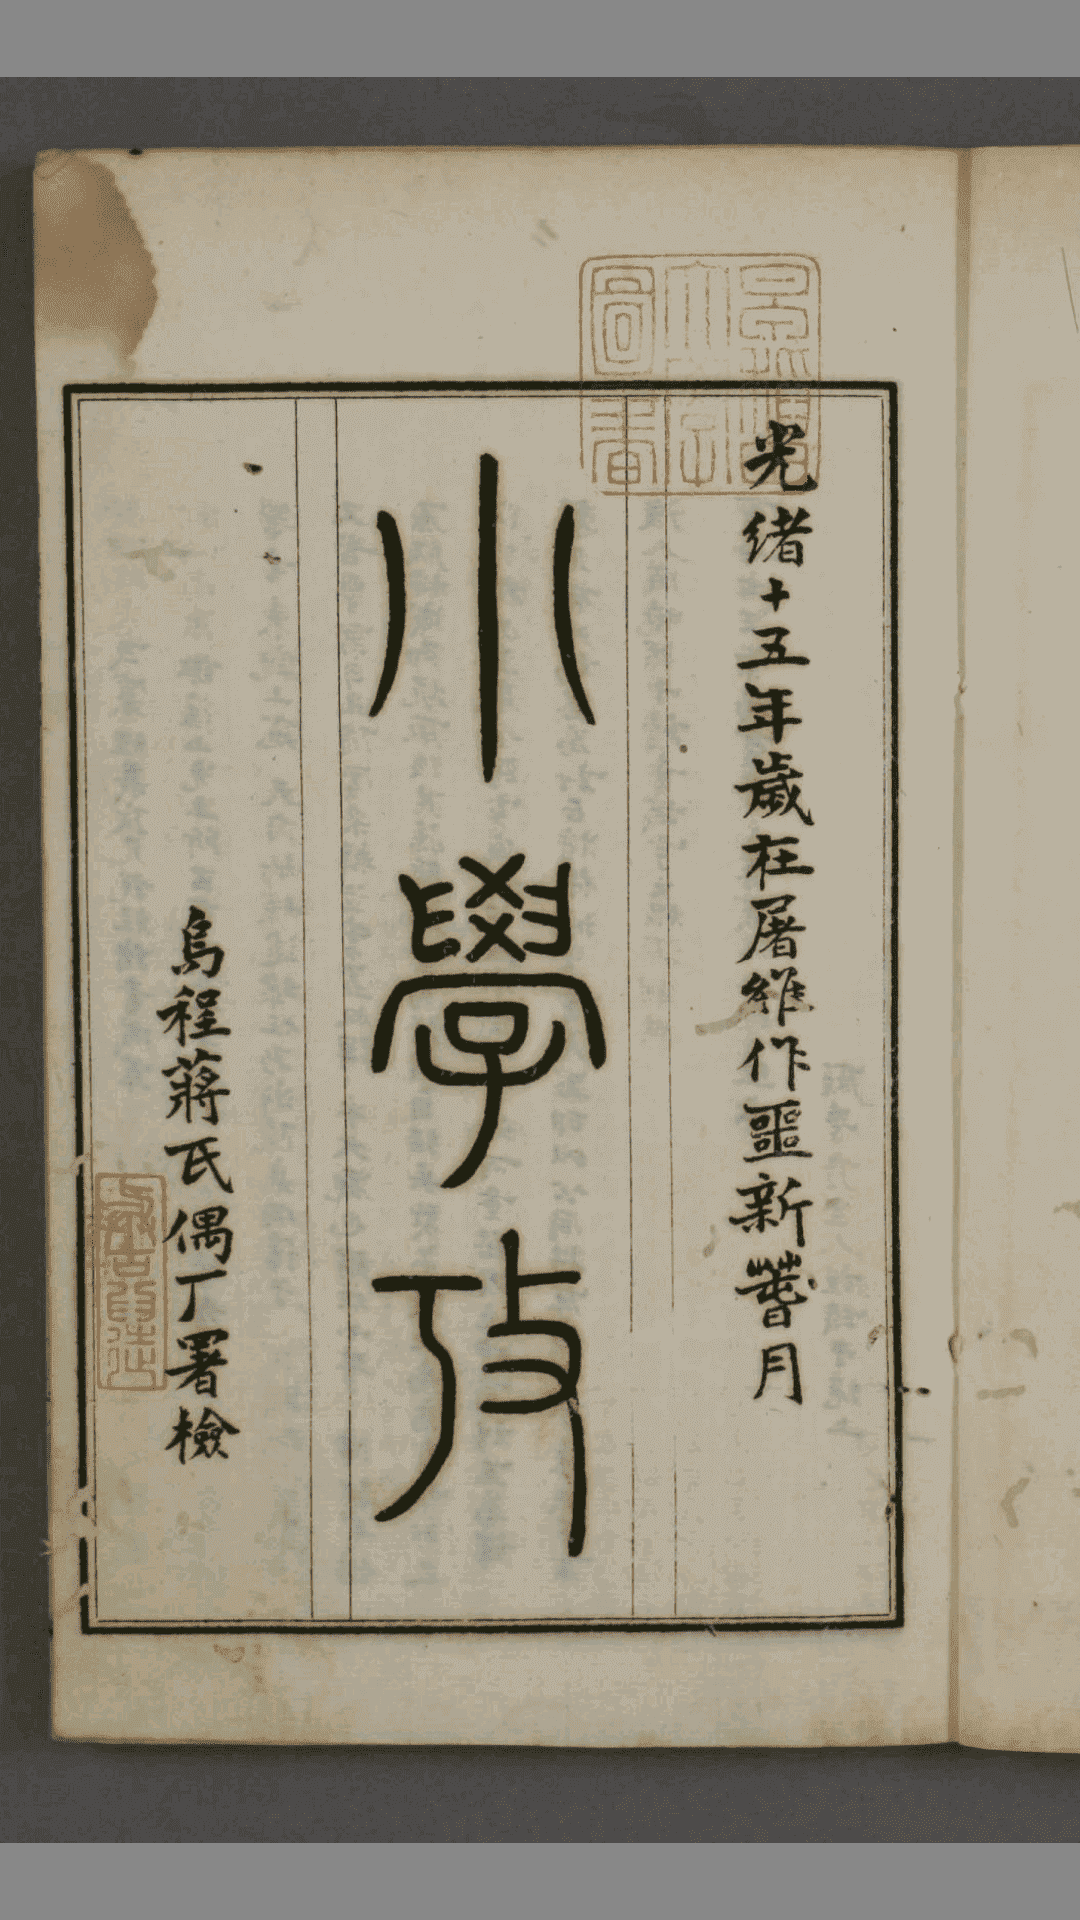 光緒十五年歲在屠維作噩新蕾月
小學攷
烏程蔣氏偶丁署檢